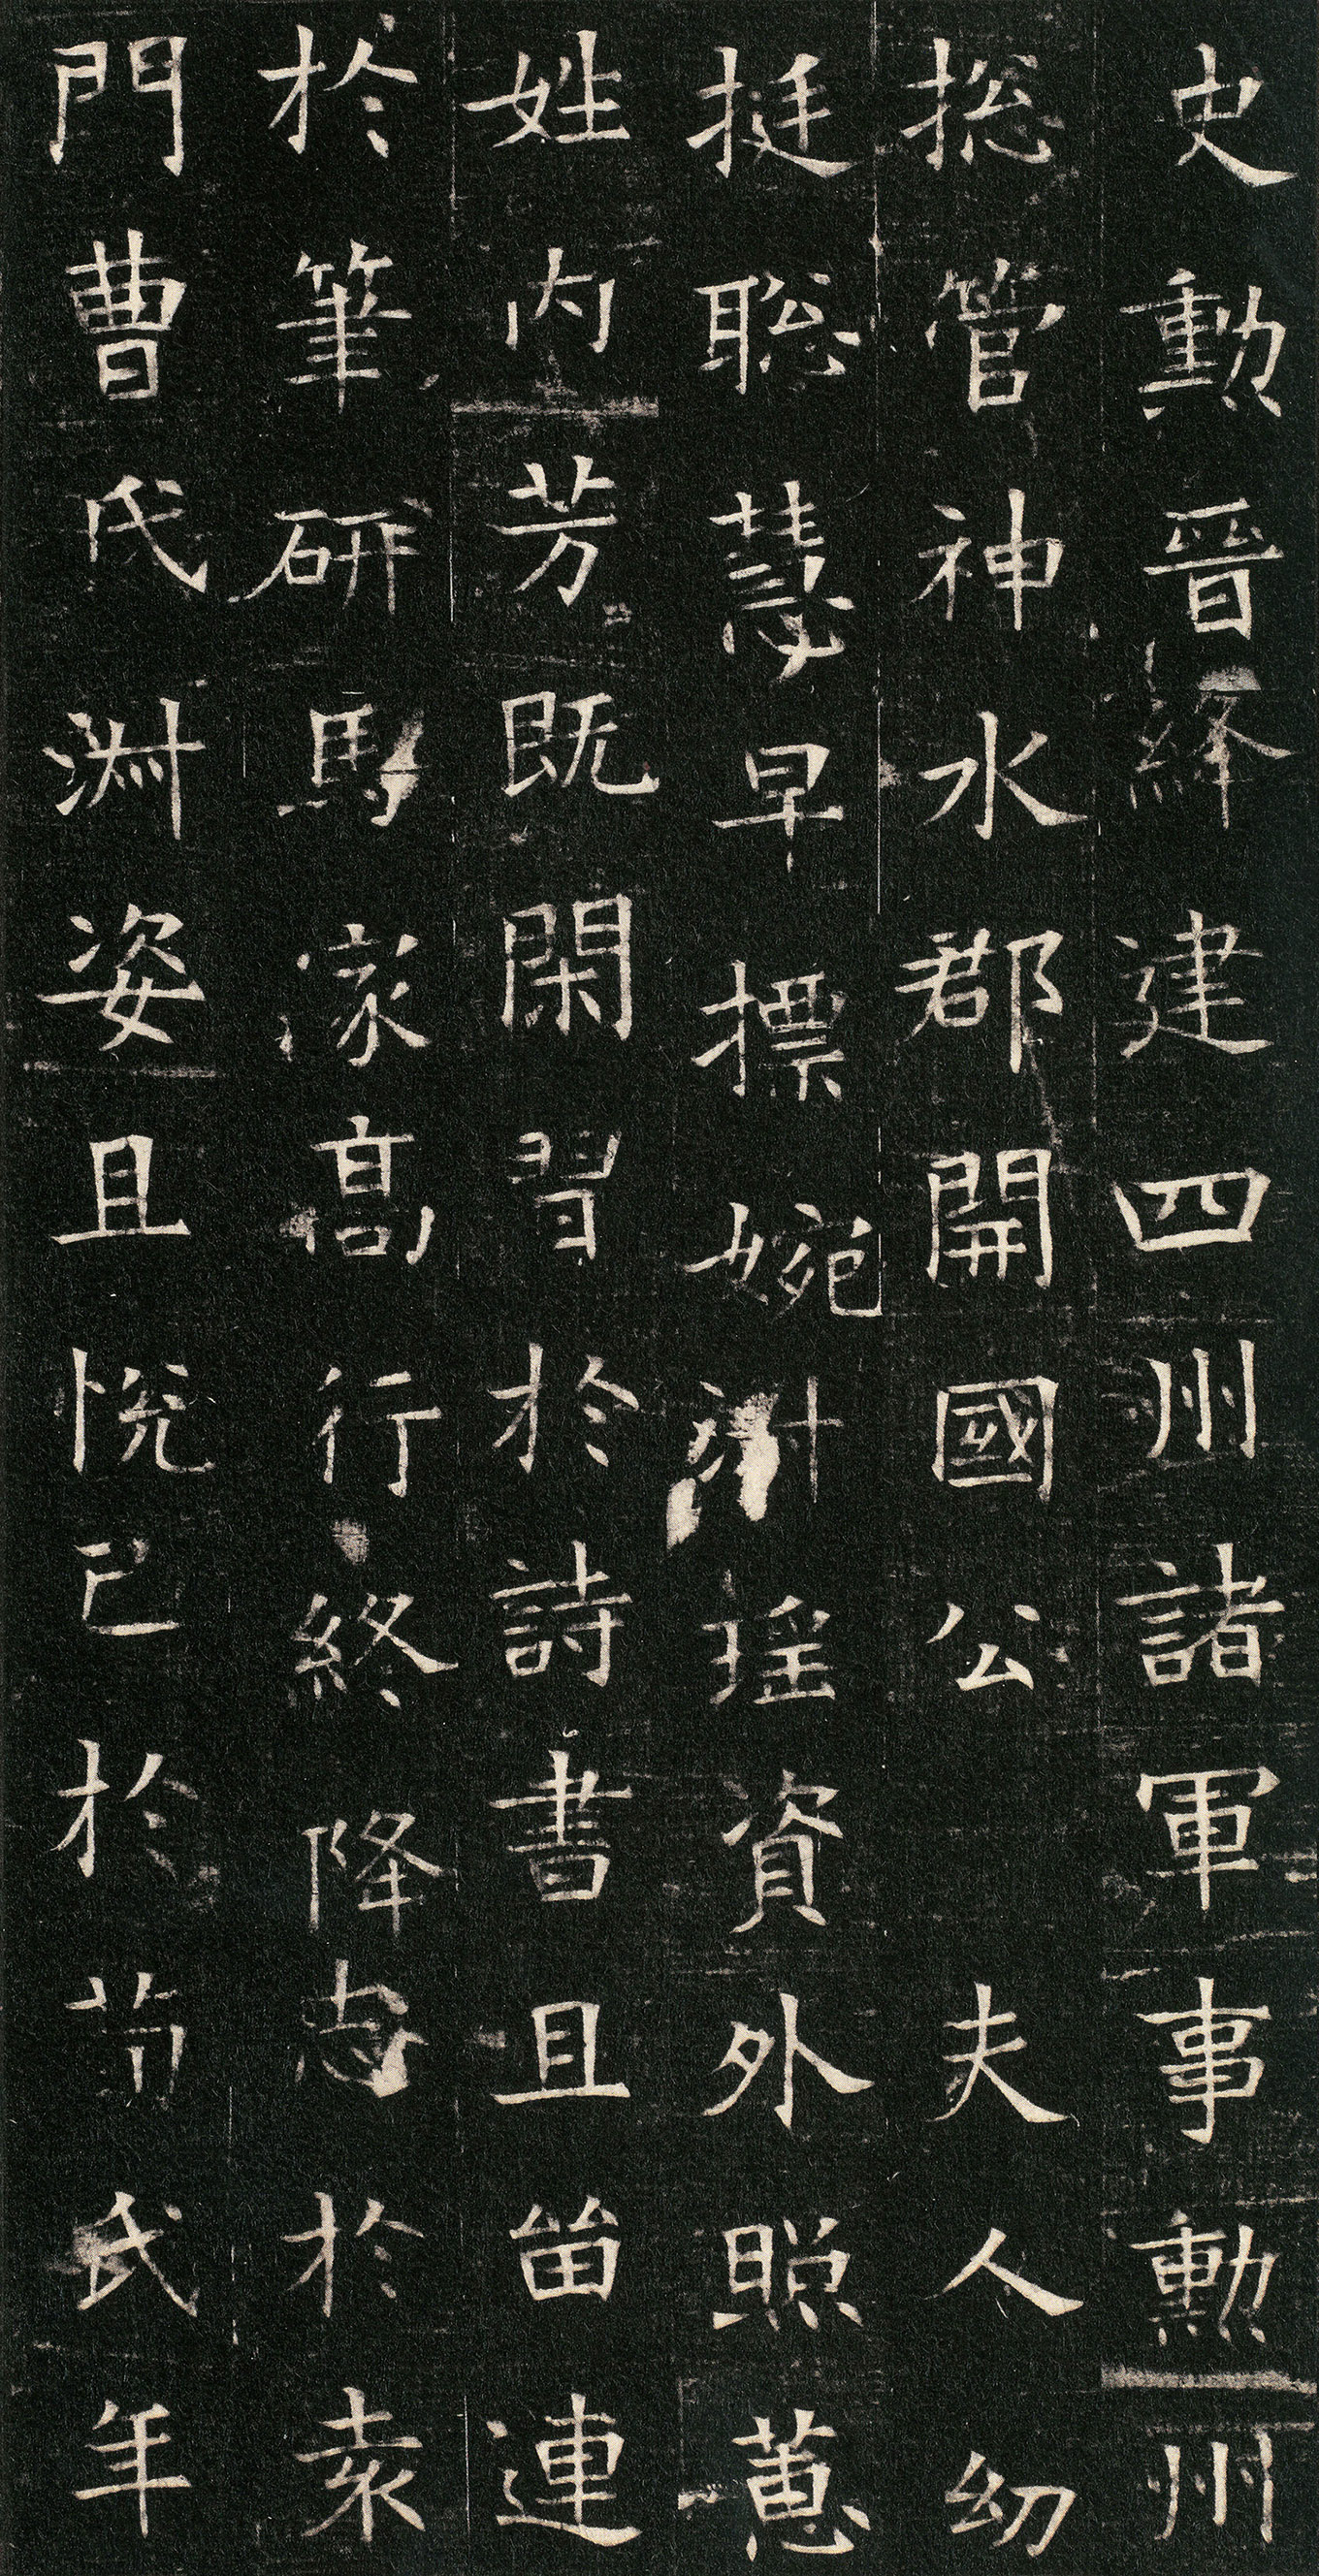 史勳晉絳建四州諸軍事勳州
捴管神水郡開國公夫人幼
挺聡慧早摽婉淑瑶資外照蕙
姓内芳既閑習於詩書且留連
於筆研馬家高行終降志於袁
門曹氏淑姿且悅己於荀氏年